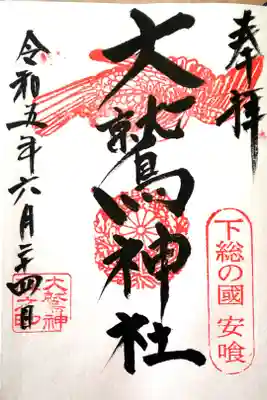 奉拝
下総の國 安喰
大鷲神社
令和五年六月二十四日
大鷲神